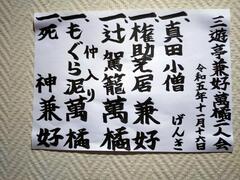 三遊亭兼好 萬橘二人会
令和五年十一月十六日
一、真田小僧 げんき
一、権助芝居 兼好
一、辻駕籠 萬橘
仲入り
一、もぐら泥 萬橘
一、死神 兼好